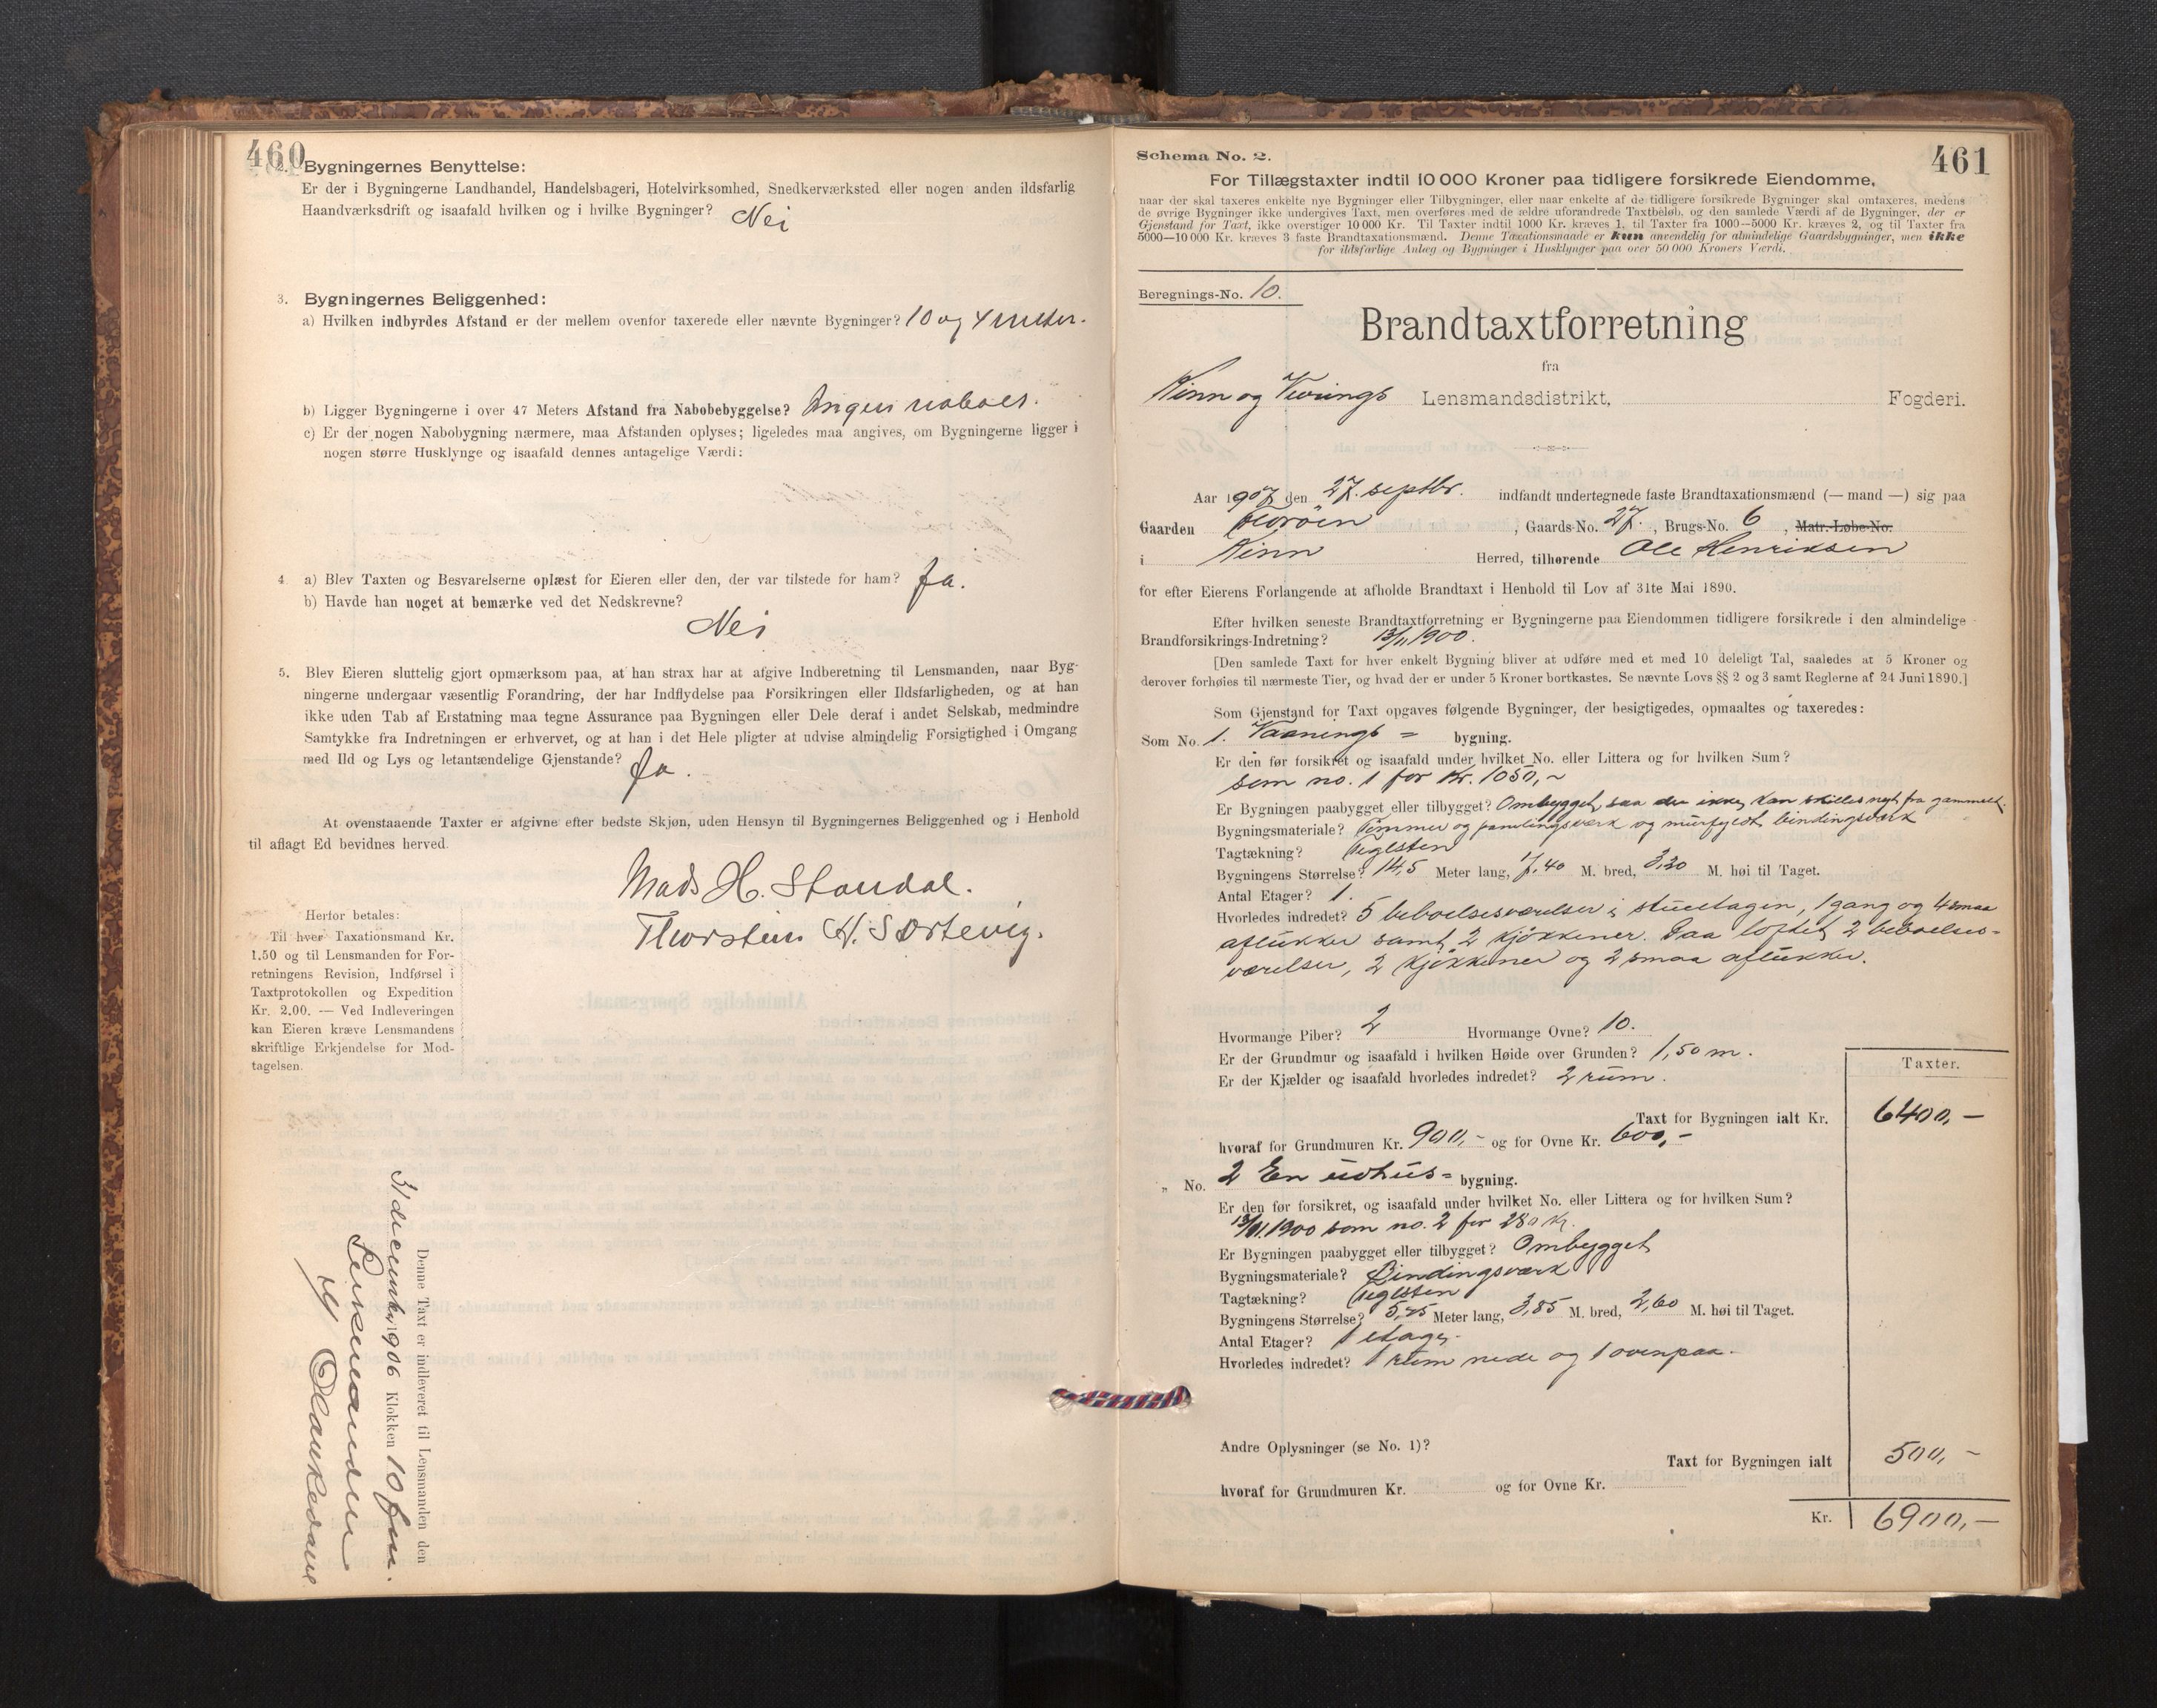 460
2. Bygningernes Benyttelse:
Er der i Bygningerne Landhandel, Handelsbageri, Hotelvirksomhed, Snedkerværksted eller nogen anden ildsfarlig
Haandværksdrift og isaafald hvilken og i hvilke Bygninger? Nei
3. Bygningernes Beliggenhed:
a) Hvilken indbyrdes Afstand er der mellem ovenfor taxerede eller nævnte Bygninger? 10 og 4 meter.
b) Ligger Bygningerne i over 47 Meters Afstand fra Nabobebyggelse? Ingen naboer.
c) Er der nogen Nabobygning nærmere, maa Afstanden oplyses; ligeledes maa angives, om Bygningerne ligger i
nogen større Husklynge og isaafald dennes antagelige Værdi:
4 a) Blev Taxten og Besvarelserne oplæst for Eieren eller den, der var tilstede for ham? Ja.
b) Havde han noget at bemærke ved det Nedskrevne?
Nei
5. Blev Eieren sluttelig gjort opmærksom paa, at han strax har at afgive Indberetning til Lensmanden, naar Byg-
ningerne undergaar væsentlig Forandring, der har Indflydelse paa Forsikringen eller Ildsfarligheden, og at han
ikke uden Tab af Erstatning maa tegne Assurance paa Bygningen eller Dele deraf i andet Selskab, medmindre
Samtykke fra Indretningen er erhvervet, og at han i det Hele pligter at udvise almindelig Forsigtighed i Omgang
med Ild og Lys og letantændelige Gjenstande? Ja.
At ovenstaaende Taxter er afgivne efter bedste Skjøn, uden Hensyn til Bygningernes Beliggenhed og i Henhold
til aflagt Ed bevidnes herved.
Mads H. Standal.
Thorstein H. Sørtevig.
Herfor betales:
Til hver Taxationsmand Kr.
1.50 og til Lensmanden for For-
retningens Revision, Indførsel i
Taxtprotokollen og Expedition
Kr. 2.00. — Ved Indleveringen
kan Eieren kræve Lensmandens
skriftlige Erkjendelse for Mod-
tagelsen.
Denne Taxt er indleveret til Lensmanden den
31 december 1906 Klokken 10 fm.
461
Schema No. 2.
For Tillægstaxter indtil 10 000 Kroner paa tidligere forsikrede Eiendomme,
naar der skal taxeres enkelte nye Bygninger eller Tilbygninger, eller naar enkelte af de tidligere forsikrede Bygninger skal omtaxeres, medens
de øvrige Bygninger ikke undergives Taxt, men overføres med de ældre uforandrede Taxtbeløb, og den samlede Værdi af de Bygninger, der er
Gjenstand for Taxt, ikke overstiger 10 000 Kr. Til Taxter indtil 1000 Kr. kræves 1, til Taxter fra 1000—5000 Kr. kræves 2, og til Taxter fra
5000—10 000 Kr. kræves 3 faste Brandtaxationsmænd. Denne Taxationsmaade er kun anvendelig for almindelige Gaardsbygninger, men ikke
for ildsfarlige Anlæg og Bygninger i Husklynger paa over 50 000 Kroners Værdi.
Beregnings-No. 10.
Brandtaxtforretning
fra
Kinn og Vevrings Lensmandsdistrikt, Fogderi.
Aar 1907 den 27. septbr. indfandt undertegnede faste Brandtaxationsmænd (— mand —) sig paa
Gaarden Florøen, Gaards-No. 27., Brugs-No. 6, Matr.-Løbe-No.
i Kinn Herred, tilhørende Ole Henriksen
for efter Eierens Forlangende at afholde Brandtaxt i Henhold til Lov af 31te Mai 1890.
Efter hvilken seneste Brandtaxtforretning er Bygningerne paa Eiendommen tidligere forsikrede i den almindelige
Brandforsikrings-Indretning? 13/11 1900.
[Den samlede Taxt for hver enkelt Bygning bliver at udføre med et med 10 deleligt Tal, saaledes at 5 Kroner og
derover forhøies til nærmeste Tier, og hvad der er under 5 Kroner bortkastes. Se nævnte Lovs §§ 2 og 3 samt Reglerne af 24 Juni 1890.]
Som Gjenstand for Taxt opgaves følgende Bygninger, der besigtigedes, opmaaltes og taxeredes:
Som No. 1. Vaanings = bygning.
Er den før forsikret og isaafald under hvilket No. eller Littera og for hvilken Sum?
som no. 1 for Kr. 1050,-
Er Bygningen paabygget eller tilbygget? Ombygget, saa der ikke kan skilles nyt fra gammelt.
Bygningsmateriale? Tømmer og panelingsværk og murfyldt bindingsværk
Tagtækning? Teglsten
Bygningens Størrelse? 14,5 Meter lang, 7,40 M. bred, 3,20 M. høi til Taget.
Antal Etager? 1.
Hvorledes indredet? 5 beboelsesværelser i stueetagen, 1 gang og 4 smaa
aflukker samt 2 kjøkkener. Paa loftet 2 beboelses-
værelser, 2 kjøkkener og 2 smaa aflukker.
Hvormange Piber? 2 Hvormange Ovne? 10.
Er der Grundmur og isaafald i hvilken Høide over Grunden? 1,50 m.
Er der Kjælder og isaafald hvorledes indredet? 2 rum.
Taxter.
Taxt for Bygningen ialt Kr. 6400,-
hvoraf for Grundmuren Kr. 900,- og for Ovne Kr. 600,-
„ No. 2 En udhus= bygning.
Er den før forsikret, og isaafald under hvilket No. eller Littera og for hvilken Sum?
13/11 1900 som no. 2 for 280 Kr.
Er Bygningen paabygget eller tilbygget? Ombygget
Bygningsmateriale? Bindingsværk
Tagtækning? Teglsten
Bygningens Størrelse? 5,45 Meter lang, 3,85 M. bred, 2,60 M. høi til Taget.
Antal Etager? 1 etage.
Hvorledes indredet? 1 rum nede og 1 ovenpaa.
Andre Oplysninger (se No. 1)?
Taxt for Bygningen ialt 500,-
hvoraf for Grundmuren Kr. og for Ovne Kr.
Kr. 6900,-